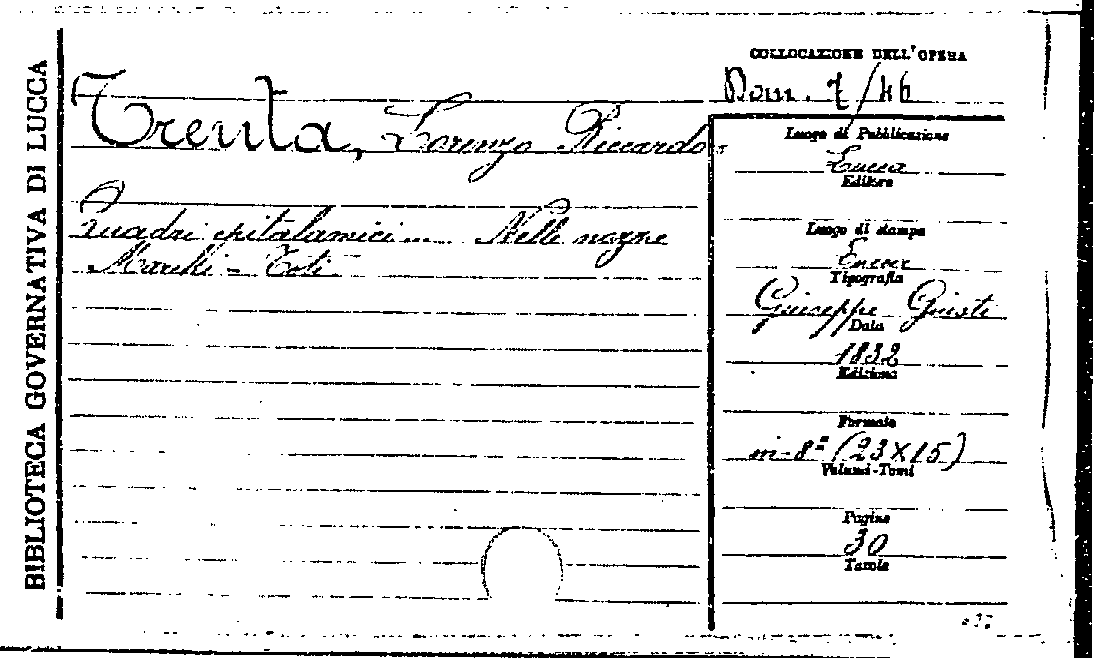 BIBLIOTECA GOVERNATIVA DI LUCCA
COLLOCAZIONE DELL'OPERA
Dom. 7/46
Trenta, Lorenzo Riccardo.
Quadri epitalamici.... Nelle nozze
- Toti
Luogo di Pubblicazione
Lucca
Editore
Luogo di stampa
Lucca
Tipografia
Giuseppe Giusti
Data
1832
Edizione
Formato
in-8º (23X15)
Volumi-Tomi
Pagine
30
Tavole